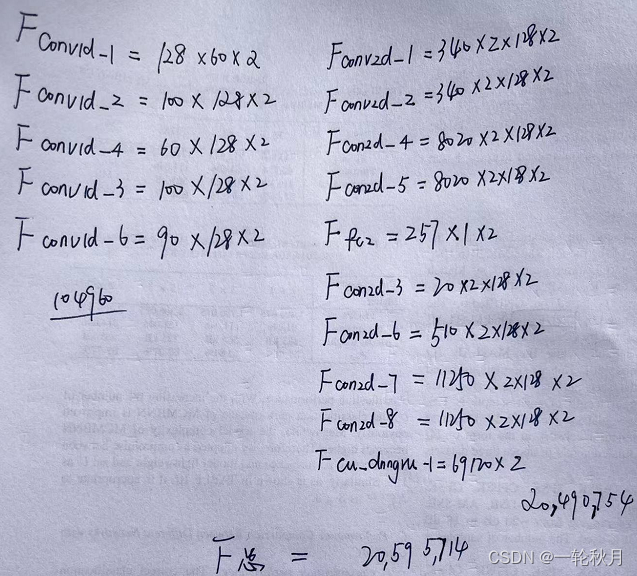 F conv1d-1 = 128 x 60 x 2
F conv1d-2 = 100 x 128 x 2
F conv1d-4 = 60 x 128 x 2
F conv1d-3 = 100 x 128 x 2
F conv1d-6 = 90 x 128 x 2
104960
F conv2d-1 = 340 x 2 x 128 x 2
F conv2d-2 = 340 x 2 x 128 x 2
F con2d-4 = 8020 x 2 x 128 x 2
F con2d-5 = 8020 x 2 x 128 x 2
F fc2 = 257 x 1 x 2
F con2d-3 = 20 x 2 x 128 x 2
F con2d-6 = 510 x 2 x 128 x 2
F con2d-7 = 11250 x 2 x 128 x 2
F con2d-8 = 11250 x 2 x 128 x 2
-1 = 69120 x 2
20,490,754
F总 = 20,595,714
CSDN @一轮秋月